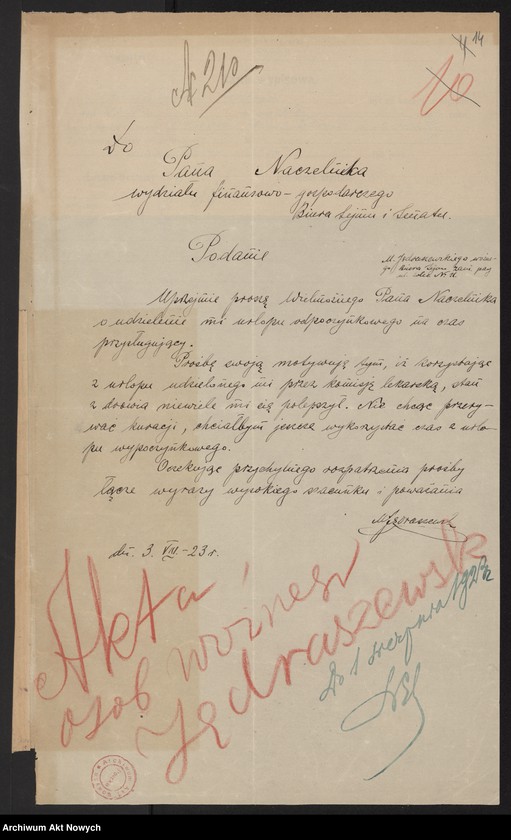 A 210
4 14
10
Do
Pana Naczelnika
wydziału finansowo-gospodarczego
Biura Sejmu i Senatu.
Podanie
M. Jędraszewskiego
Biura Sejmu zam. przy
Uprzejmie proszę Wielmożnego Pana Naczelnika
o udzielenie mi urlopu odpoczynkowego na czas
przysługujący.
Prośbę swoją motywuję tym, iż korzystając
z urlopu udzielonego mi przez komisję lekarską, stan
zdrowia niewiele mi się polepszył. Nie chcąc przery-
wać kuracji, chciałbym jeszcze wykorzystać czas z urlo-
pu wypoczynkowego.
Oczekując przychylnego rozpatrzenia prośby
łączę wyrazy wysokiego szacunku i poważania
MJędraszewsk
dn. 3. VII.-23 r.
Akta
osob woźnego
Jędraszewsk
do 1 sierpnia 1923 r.
Archiwum Akt Nowych